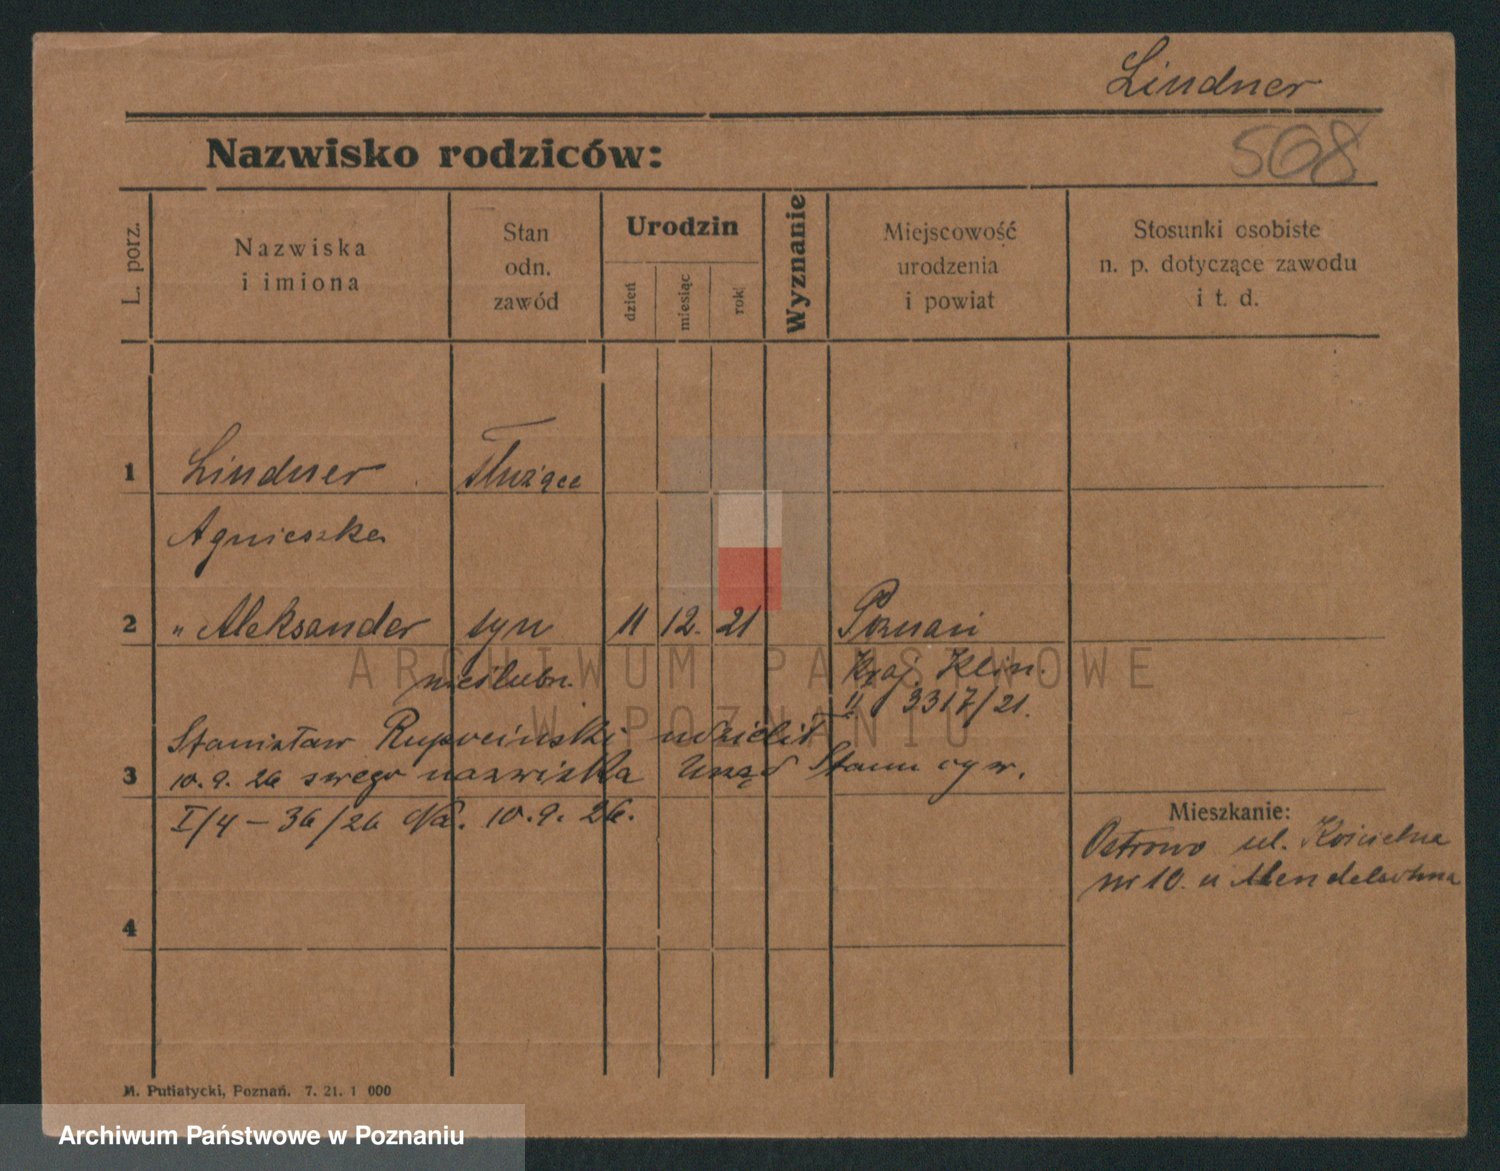 Lindner
568
Nazwisko rodziców:
L. porz.
Nazwiska
i imiona
Stan
odn.
zawód
Urodzin
dzień
miesiąc
rok
Wyznanie
Miejscowość
urodzenia
i powiat
Stosunki osobiste
n. p. dotyczące zawodu
i t. d.
1 Lindner służąca
Agnieszka
2 " Aleksander syn 11 12. 21 Poznań
nieślubn. Kraj. Klin.
3317/21.
Stanisław Rupociński udzielił
3 10.9.26 swego nazwiska Urząd Stanu cyw.
I/4 - 36/26 10.9.26.
Mieszkanie:
Ostrowo ul. Kościelna
nr 10. u Mendelsohna
4
M. Putiatycki, Poznań. 7. 21. 1 000
ARCHIWUM PAŃSTWOWE
W POZNANIU
Archiwum Państwowe w Poznaniu